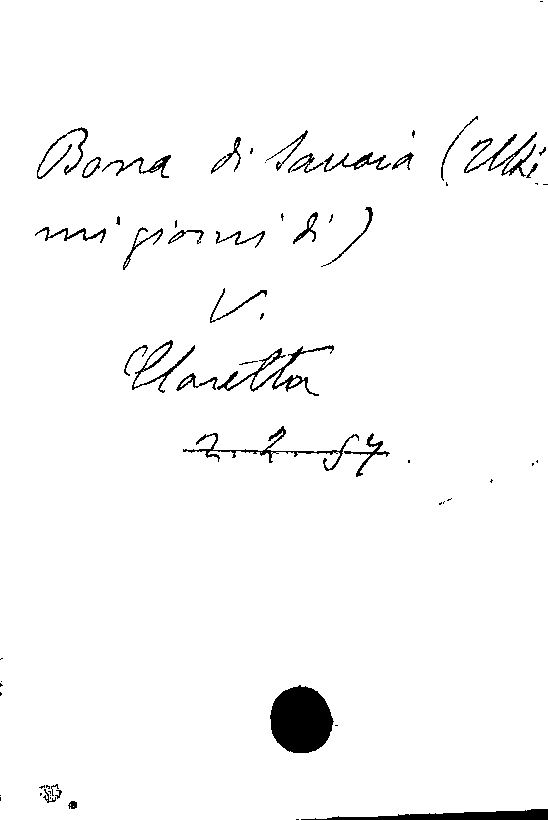 Bona di Savoia (Ulti
mi giorni di)
V.
Claretta
2.2.57.